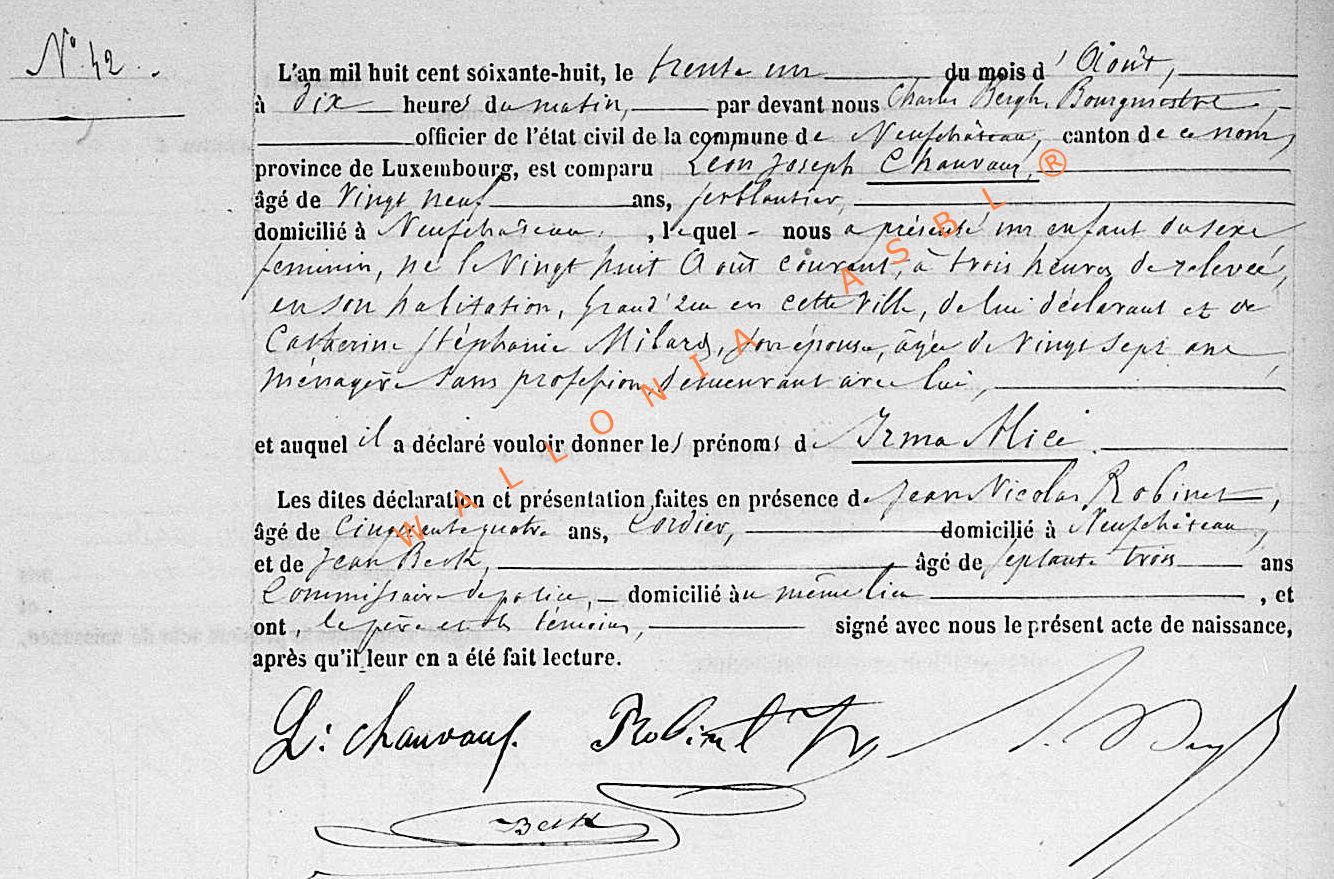 N° 42.
L'an mil huit cent soixante-huit, le trente un du mois d'Août,
à dix heures du matin, par devant nous Charles Bergh, Bourgmestre,
officier de l'état civil de la commune de Neufchâteau, canton de ce nom,
province de Luxembourg, est comparu Léon Joseph Chauvaux,
âgé de Vingt neuf ans, ferblantier,
domicilié à Neufchâteau, lequel nous a présenté un enfant du sexe
feminin, né le Vingt huit Août courant, à trois heures de relevée,
en son habitation, Grand'rue en cette Ville, de lui déclarant et de
Catherine Stéphanie Milard, son épouse, âgée de Vingt sept ans
ménagère sans profession, demeurant avec lui,
et auquel il a déclaré vouloir donner les prénoms de Irma Alice.
Les dites déclaration et présentation faites en présence de Jean Nicolas Robinet,
âgé de Cinquante quatre ans, Cordier, domicilié à Neufchâteau,
et de Jean Beck, âgé de septante trois ans
Commissaire de police, domicilié au même lieu, et
ont, le père et les témoins, signé avec nous le présent acte de naissance,
après qu'il leur en a été fait lecture.
L: Chauvaux. Robinet
Beck
WALLONIA ASBL ®